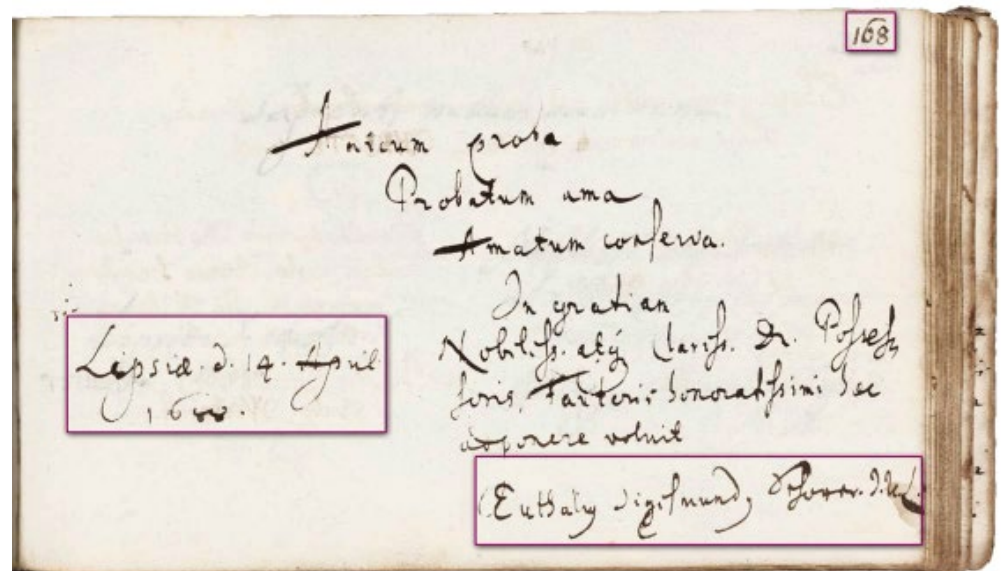 168
Amicum proba
Probatum ama
Amatum conserva.
In gratiam
Nobiliss. atq Clariss. Dn. Posses
soris, Fautoris honoratissimi hæc
apponere voluit
Lipsiæ. d. 14. April
16
Euthaly Sigismund,